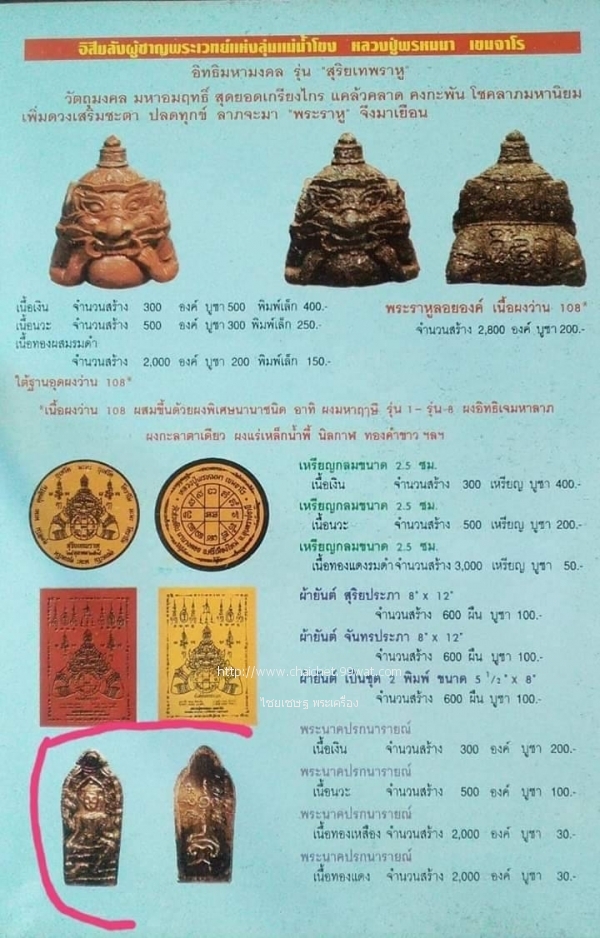 อิสึมลับผู้ชาญพระเวทย์แห่งลุ่มแม่น้ำโขง หลวงปู่พรหมมา เขมจาโร
อิทธิมหามงคล รุ่น "สุริยเทพราหู"
วัตถุมงคล มหาอมฤทธิ์ สุดยอดเกรียงไกร แคล้วคลาด คงกะพัน โชคลาภมหานิยม
เพิ่มดวงเสริมชะตา ปลดทุกข์ ลาภจะมา "พระราหู" จึงมาเยือน
เนื้อเงิน จำนวนสร้าง 300 องค์ บูชา 500 พิมพ์เล็ก 400.-
เนื้อนวะ จำนวนสร้าง 500 องค์ บูชา 300 พิมพ์เล็ก 250.-
เนื้อทองผสมรมดำ
จำนวนสร้าง 2,000 องค์ บูชา 200 พิมพ์เล็ก 150.-
ใต้ฐานอุดผงว่าน 108*
พระราหูลอยองค์ เนื้อผงว่าน 108*
จำนวนสร้าง 2,800 องค์ บูชา 200.-
*เนื้อผงว่าน 108 ผสมขึ้นด้วยผงพิเศษนานาชนิด อาทิ ผงมหาฤาษี รุ่น 1- รุ่น-8 ผงอิทธิเจมหาลาภ
ผงกะลาตาเดียว ผงแร่เหล็กน้ำพี้ นิลกาฬ ทองคำขาว ฯลฯ
เหรียญกลมขนาด 2.5 ซม.
เนื้อเงิน จำนวนสร้าง 300 เหรียญ บูชา 400.-
เหรียญกลมขนาด 2.5 ซม.
เนื้อนวะ จำนวนสร้าง 500 เหรียญ บูชา 200.-
เหรียญกลมขนาด 2.5 ซม.
เนื้อทองแดงรมดำ จำนวนสร้าง 3,000 เหรียญ บูชา 50.-
ผ้ายันต์ สุริยประภา 8" x 12"
จำนวนสร้าง 600 ผืน บูชา 100.-
ผ้ายันต์ จันทรประภา 8" x 12"
จำนวนสร้าง 600 ผืน บูชา 100.-
ผ้ายันต์ เป็นชุด 2 พิมพ์ ขนาด 5 1/2" x 8"
จำนวนสร้าง 600 ผืน บูชา 100.-
http://www.chaichet.99wat.com
ไชยเชษฐ พระเครื่อง
พระนาคปรกนารายณ์
เนื้อเงิน จำนวนสร้าง 300 องค์ บูชา 200.-
พระนาคปรกนารายณ์
เนื้อนวะ จำนวนสร้าง 500 องค์ บูชา 100.-
พระนาคปรกนารายณ์
เนื้อทองเหลือง จำนวนสร้าง 2,000 องค์ บูชา 30.-
พระนาคปรกนารายณ์
เนื้อทองแดง จำนวนสร้าง 2,000 องค์ บูชา 30.-